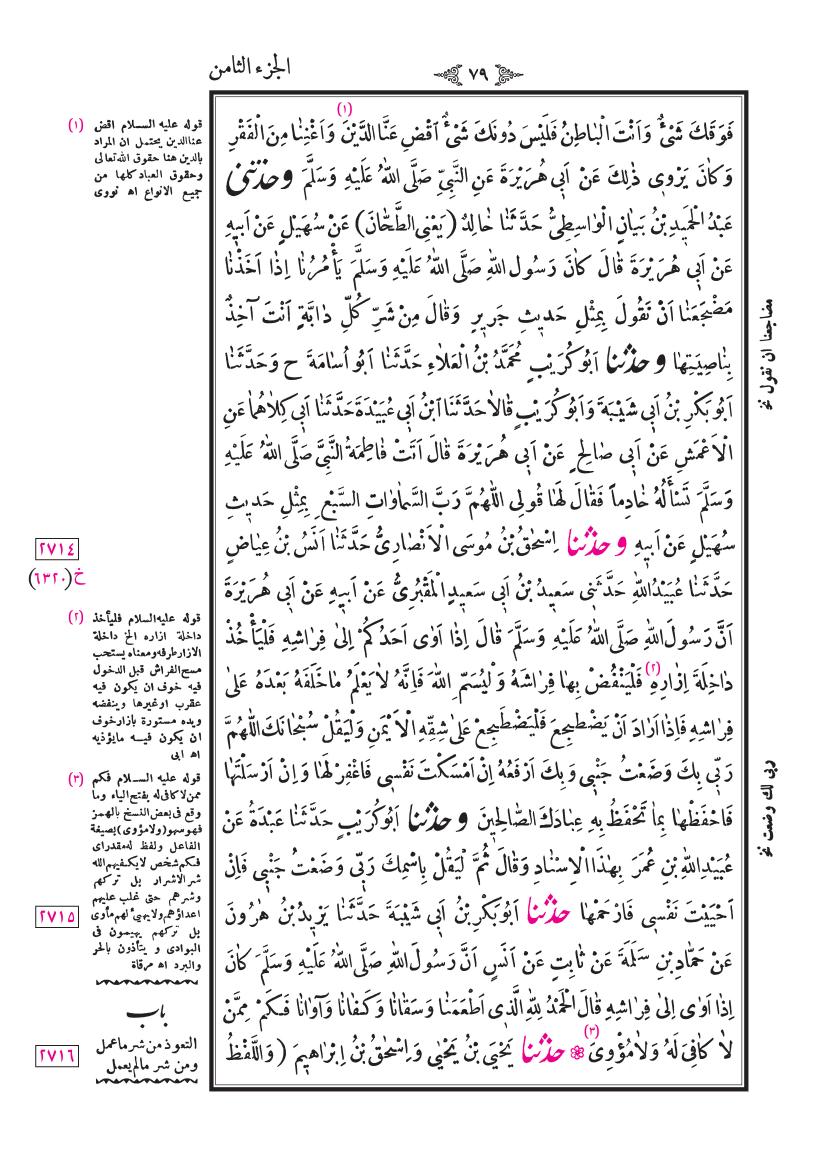 الجزء الثامن
٧٩
فَوْقَكَ شَىْءٌ وَاَنْتَ الْبَاطِنُ فَلَيْسَ دُونَكَ شَىْءٌ اَقْضِ عَنَّا الدَّيْنَ (١) وَاَغْنِنَا مِنَ الْفَقْرِ
وَكَانَ يَرْوِى ذٰلِكَ عَنْ اَبِى هُرَيْرَةَ عَنِ النَّبِىِّ صَلَّى اللهُ عَلَيْهِ وَسَلَّمَ وحدثنى
عَبْدُ الْحَمِيدِ بْنُ بَيَانٍ الْوَاسِطِىُّ حَدَّثَنَا خَالِدٌ (يَعْنِى الطَّحَّانَ) عَنْ سُهَيْلٍ عَنْ اَبِيهِ
عَنْ اَبِى هُرَيْرَةَ قَالَ كَانَ رَسُولُ اللهِ صَلَّى اللهُ عَلَيْهِ وَسَلَّمَ يَأْمُرُنَا اِذَا اَخَذْنَا
مَضْجَعَنَا اَنْ نَقُولَ بِمِثْلِ حَدِيثِ جَرِيرٍ وَقَالَ مِنْ شَرِّ كُلِّ دَابَّةٍ اَنْتَ آخِذٌ
بِنَاصِيَتِهَا وحدثنا اَبُو كُرَيْبٍ مُحَمَّدُ بْنُ الْعَلَاءِ حَدَّثَنَا اَبُو اُسَامَةَ ح وَحَدَّثَنَا
اَبُو بَكْرِ بْنُ اَبِى شَيْبَةَ وَاَبُو كُرَيْبٍ قَالَا حَدَّثَنَا ابْنُ اَبِى عُبَيْدَةَ حَدَّثَنَا اَبِى كِلَاهُمَا عَنِ
الْاَعْمَشِ عَنْ اَبِى صَالِحٍ عَنْ اَبِى هُرَيْرَةَ قَالَ اَتَتْ فَاطِمَةُ النَّبِىَّ صَلَّى اللهُ عَلَيْهِ
وَسَلَّمَ تَسْأَلُهُ خَادِماً فَقَالَ لَهَا قُولِى اللّٰهُمَّ رَبَّ السَّمَاوَاتِ السَّبْعِ بِمِثْلِ حَدِيثِ
سُهَيْلٍ عَنْ اَبِيهِ وحدثنا اِسْحٰقُ بْنُ مُوسَى الْاَنْصَارِىُّ حَدَّثَنَا اَنَسُ بْنُ عِيَاضٍ
حَدَّثَنَا عُبَيْدُ اللهِ حَدَّثَنِى سَعِيدُ بْنُ اَبِى سَعِيدٍ الْمَقْبُرِىُّ عَنْ اَبِيهِ عَنْ اَبِى هُرَيْرَةَ
اَنَّ رَسُولَ اللهِ صَلَّى اللهُ عَلَيْهِ وَسَلَّمَ قَالَ اِذَا اَوٰى اَحَدُكُمْ اِلٰى فِرَاشِهِ فَلْيَأْخُذْ
دَاخِلَةَ اِزَارِهِ (٢) فَلْيَنْفُضْ بِهَا فِرَاشَهُ وَلْيُسَمِّ اللهَ فَاِنَّهُ لَا يَعْلَمُ مَا خَلَفَهُ بَعْدَهُ عَلٰى
فِرَاشِهِ فَاِذَا اَرَادَ اَنْ يَضْطَجِعَ فَلْيَضْطَجِعْ عَلٰى شِقِّهِ الْاَيْمَنِ وَلْيَقُلْ سُبْحَانَكَ اللّٰهُمَّ
رَبِّى بِكَ وَضَعْتُ جَنْبِى وَبِكَ اَرْفَعُهُ اِنْ اَمْسَكْتَ نَفْسِى فَاغْفِرْ لَهَا وَاِنْ اَرْسَلْتَهَا
فَاحْفَظْهَا بِمَا تَحْفَظُ بِهِ عِبَادَكَ الصَّالِحِينَ وحدثنا اَبُو كُرَيْبٍ حَدَّثَنَا عَبْدَةُ عَنْ
عُبَيْدِ اللهِ بْنِ عُمَرَ بِهٰذَا الْاِسْنَادِ وَقَالَ ثُمَّ لْيَقُلْ بِاسْمِكَ رَبِّى وَضَعْتُ جَنْبِى فَاِنْ
اَحْيَيْتَ نَفْسِى فَارْحَمْهَا حدثنا اَبُو بَكْرِ بْنُ اَبِى شَيْبَةَ حَدَّثَنَا يَزِيدُ بْنُ هٰرُونَ
عَنْ حَمَّادِ بْنِ سَلَمَةَ عَنْ ثَابِتٍ عَنْ اَنَسٍ اَنَّ رَسُولَ اللهِ صَلَّى اللهُ عَلَيْهِ وَسَلَّمَ كَانَ
اِذَا اَوٰى اِلٰى فِرَاشِهِ قَالَ الْحَمْدُ لِلّٰهِ الَّذِى اَطْعَمَنَا وَسَقَانَا وَكَفَانَا وَآوَانَا فَكَمْ مِمَّنْ
لَا كَافِىَ لَهُ وَلَا مُؤْوِىَ (٣) حدثنا يَحْيَى بْنُ يَحْيٰى وَاِسْحٰقُ بْنُ اِبْرَاهِيمَ (وَاللَّفْظُ
(١) قوله عليه السلام اقض
عنا الدين يحتمل ان المراد
بالدين هنا حقوق الله تعالى
وحقوق العباد كلها من
جميع الانواع اه نووى
٢٧١٤
خ (٦٣٢٠)
(٢) قوله عليه السلام فليأخذ
داخلة ازاره الخ داخلة
الازار طرفه ومعناه يستحب
مسح الفراش قبل الدخول
فيه خوف ان يكون فيه
عقرب او غيرها وينفضه
ويده مستورة بازار خوف
ان يكون فيه مايؤذيه
اه ابى
(٣) قوله عليه السلام فكم
ممن لا كافى له بفتح الياء وما
وقع فى بعض النسخ بالهمز
فهو سهو (ولا مؤوى) بصيغة
الفاعل ولفظ له مقدر اى
فكم شخص لا يكفيهم الله
شر الاشرار بل تركهم
وشرهم حتى غلب عليهم
اعداؤهم ولا يهيئ لهم مأوى
بل تركهم يهيمون فى
البوادى و يتأذون بالحر
والبرد اه مرقاة
٢٧١٥
باب
التعوذ من شر ما عمل
ومن شر ما لم يعمل
٢٧١٦
مضاجعنا ان نقول نخ
ربى لك وضعت نخ